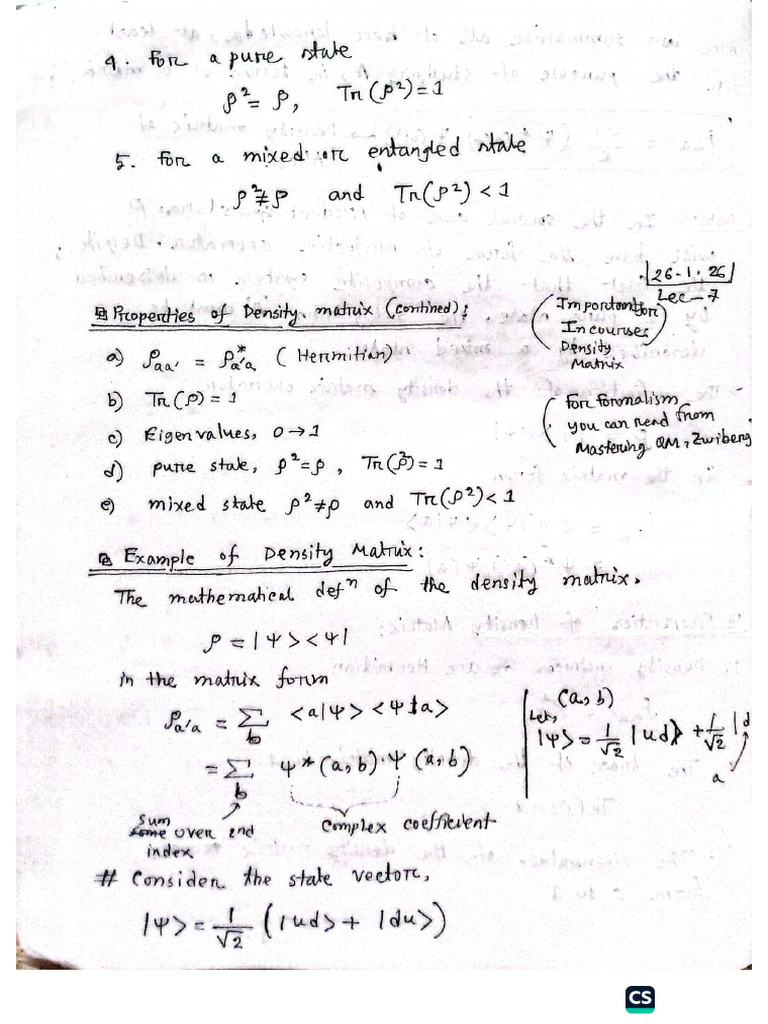 4. For a pure state
ρ² = ρ, Tr(ρ²) = 1
5. For a mixed or entangled state
ρ² ≠ ρ and Tr(ρ²) < 1
26-1-26
Lec-7
(Important for
In courses)
Density
Matrix
Properties of Density matrix (contined):
a) ρaa' = ρ*a'a (Hermitian)
b) Tr(ρ) = 1
c) Eigenvalues, 0 → 1
d) pure state, ρ² = ρ, Tr(ρ²) = 1
e) mixed state ρ² ≠ ρ and Tr(ρ²) < 1
(For formalism
you can read from
Mastering QM, Zwiberg
Example of Density Matrix:
The mathematical defⁿ of the density matrix.
ρ = |Ψ><Ψ|
in the matrix form
ρa'a = Σb <a|Ψ><Ψ|a>
= Σb Ψ*(a,b)·Ψ(a,b)
Sum over 2nd
index
complex coefficient
(a, b)
Let,
|Ψ> = 1/√2 |ud> + 1/√2 |d
a
# Consider the state vector,
|Ψ> = 1/√2 (|ud> + |du>)
CS